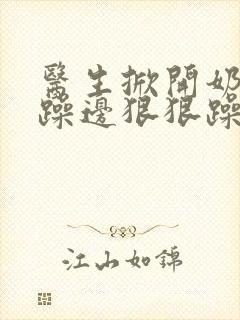 醫生掀開奶
躁邊狠狠躁
江山如錦